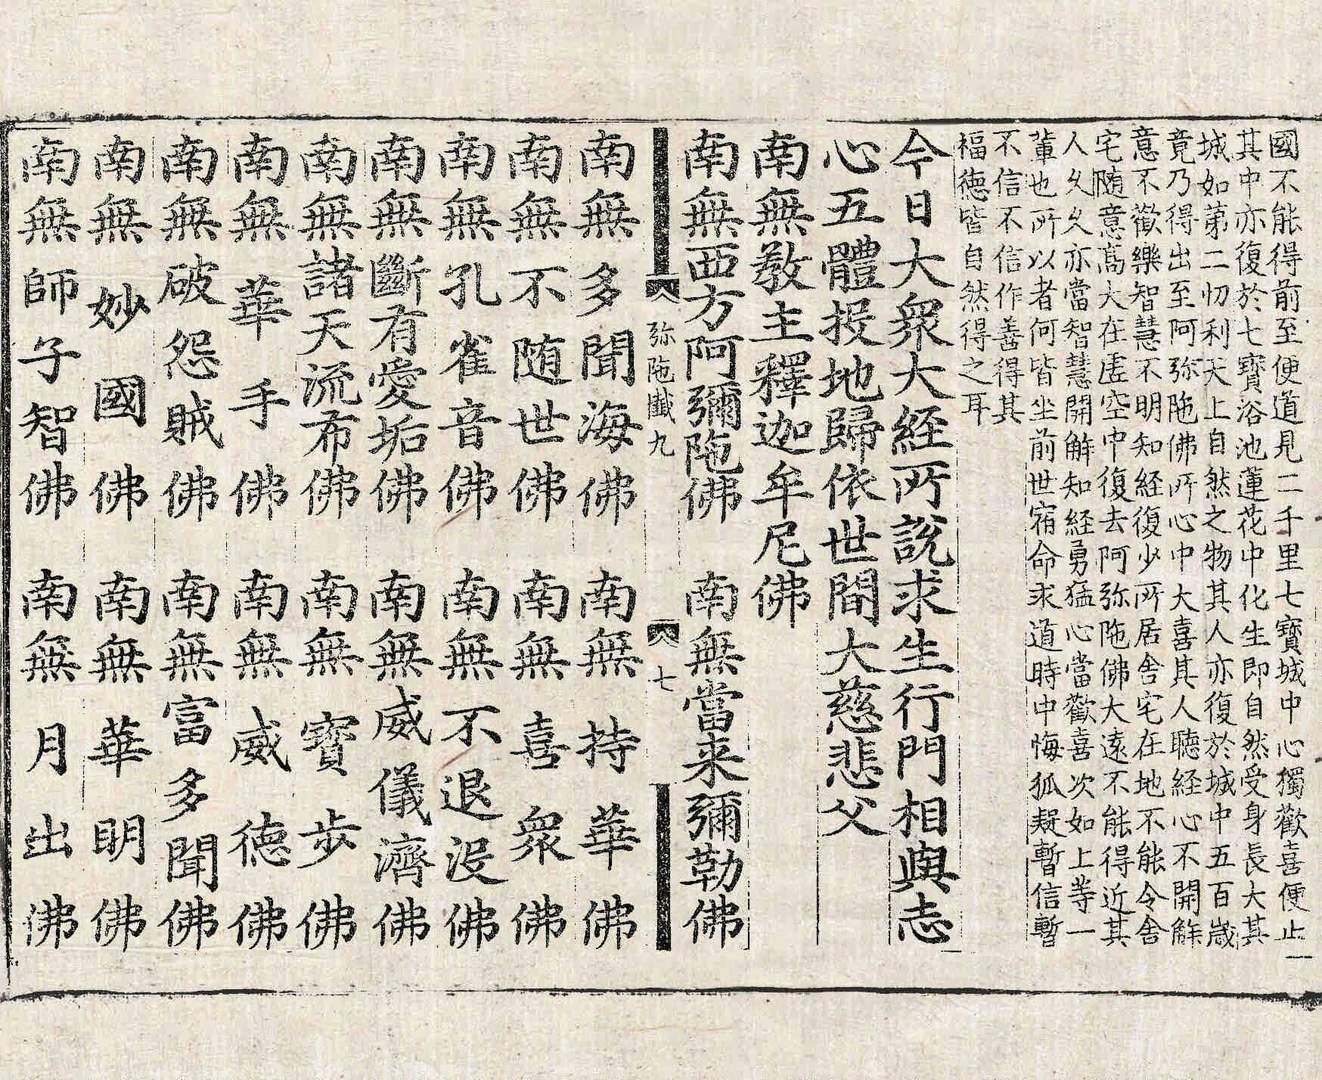 國不能得前至便道見二千里七寶城中心獨歡喜便止
其中亦復於七寶浴池蓮花中化生即自然受身長大其
城如第二忉利天上自然之物其人亦復於城中五百歲
竟乃得出至阿弥陁佛所心中大喜其人聽經心不開解
意不歡樂智慧不明知經復少所居舍宅在地不能令舍
宅隨意高大在虛空中復去阿弥陁佛大遠不能得近其
人久久亦當智慧開解知經勇猛心當歡喜次如上等一
輩也所以者何皆坐前世宿命求道時中悔狐疑暫信暫
不信不信作善得其
福德皆自然得之耳
今日大衆大經所說求生行門相與志
心五體投地歸依世間大慈悲父
南無教主釋迦牟尼佛
南無西方阿彌陁佛　南無當来彌勒佛
弥陁懺九　七
南無多聞海佛　南無持華佛
南無不随世佛　南無喜衆佛
南無孔雀音佛　南無不退没佛
南無斷有愛垢佛　南無威儀濟佛
南無諸天流布佛　南無寶步佛
南無華手佛　南無威德佛
南無破怨賊佛　南無富多聞佛
南無妙國佛　南無華明佛
南無師子智佛　南無月出佛